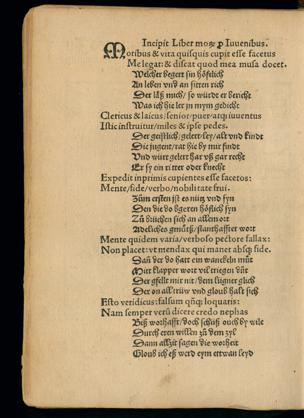 Incipit Liber moꝝ ꝓ Iuuenibus.
Moribus & vita quisquis cupit esse facetus
Me legat: & discat quod mea musa docet.
Welcher begert sin höflich
An leben vnd an sitten rich
Der läß mich/ so würde er bericht
Was ich hie ler in mym gedicht
Clericus & laicus/ senior/ puer atqȝ iuuentus
Istic instruitur/ miles & ipse pedes.
Der geistlich/ gelert/ ley/ alt vnd kindt
Die jugent/ rat hie by mir findt
Vnd würt gelert har vß gar recht
Er sy ein ritter oder knecht
Expedit inprimis cupientes esse facetos:
Mente/ fide/ verbo/ nobilitate frui.
Zům ersten ist es nütz vnd fyn
Den die do begeren höflich syn
Zů brüchen sich an allem ort
Adeliches gmüts/ standthafft wort
Mente quidem varia/ verboso pectore fallax:
Non placet: vt mendax qui manet absqȝ fide.
Dan̄ der do hatt ein wanckeln můt
Mitt klapper wort vil triegen důt
Der gfelt mir nit/ dem lügner glich
Der on all trüw vnd gloub halt sich
Esto veridicus: falsum qn̄qȝ loquaris:
Nam semper verū dicere credo nephas
Biß worhafft/ doch schüß ouch by wile
Durch eren willen zů dem zyl
Dann allzit sagen die worheit
Gloub ich eß werd eym ettwan leyd